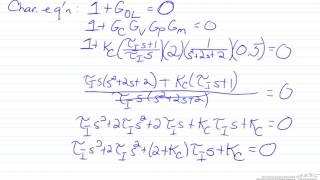 Char. eq'n: 1+G_OL = 0
1+G_C G_V G_P G_m = 0
1+K_C(τ_I s+1/τ_I s)(2)(1/s²+2s+2)(0.5) = 0
τ_I s(s²+2s+2)+K_C(τ_I s+1)/τ_I s(s²+2s+2) = 0
τ_I s³+2τ_I s²+2τ_I s+K_C τ_I s+K_C=0
τ_I s³+2τ_I s²+(2+K_C)τ_I s+K_C=0